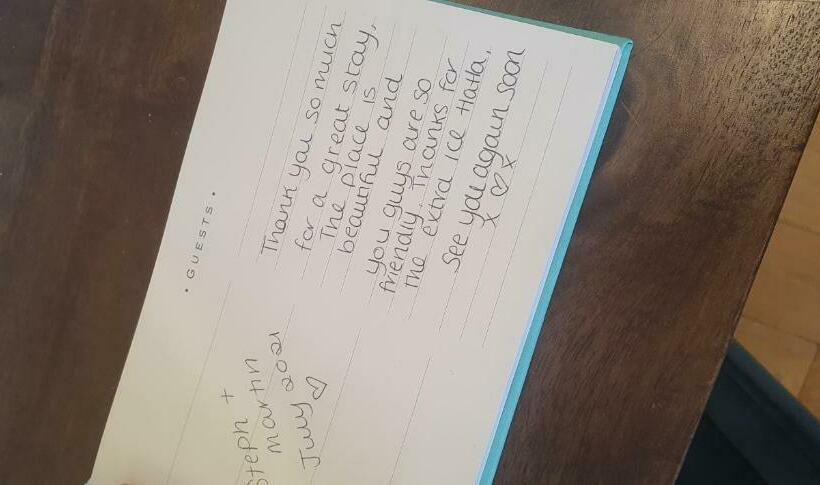 • GUESTS •
Steph +
Martin
July 2021
♡
Thank you so much
for a great stay.
The place is
beautiful and
you guys are so
friendly. Thanks for
the extra ice Haha.
See you again soon
x ♡ x